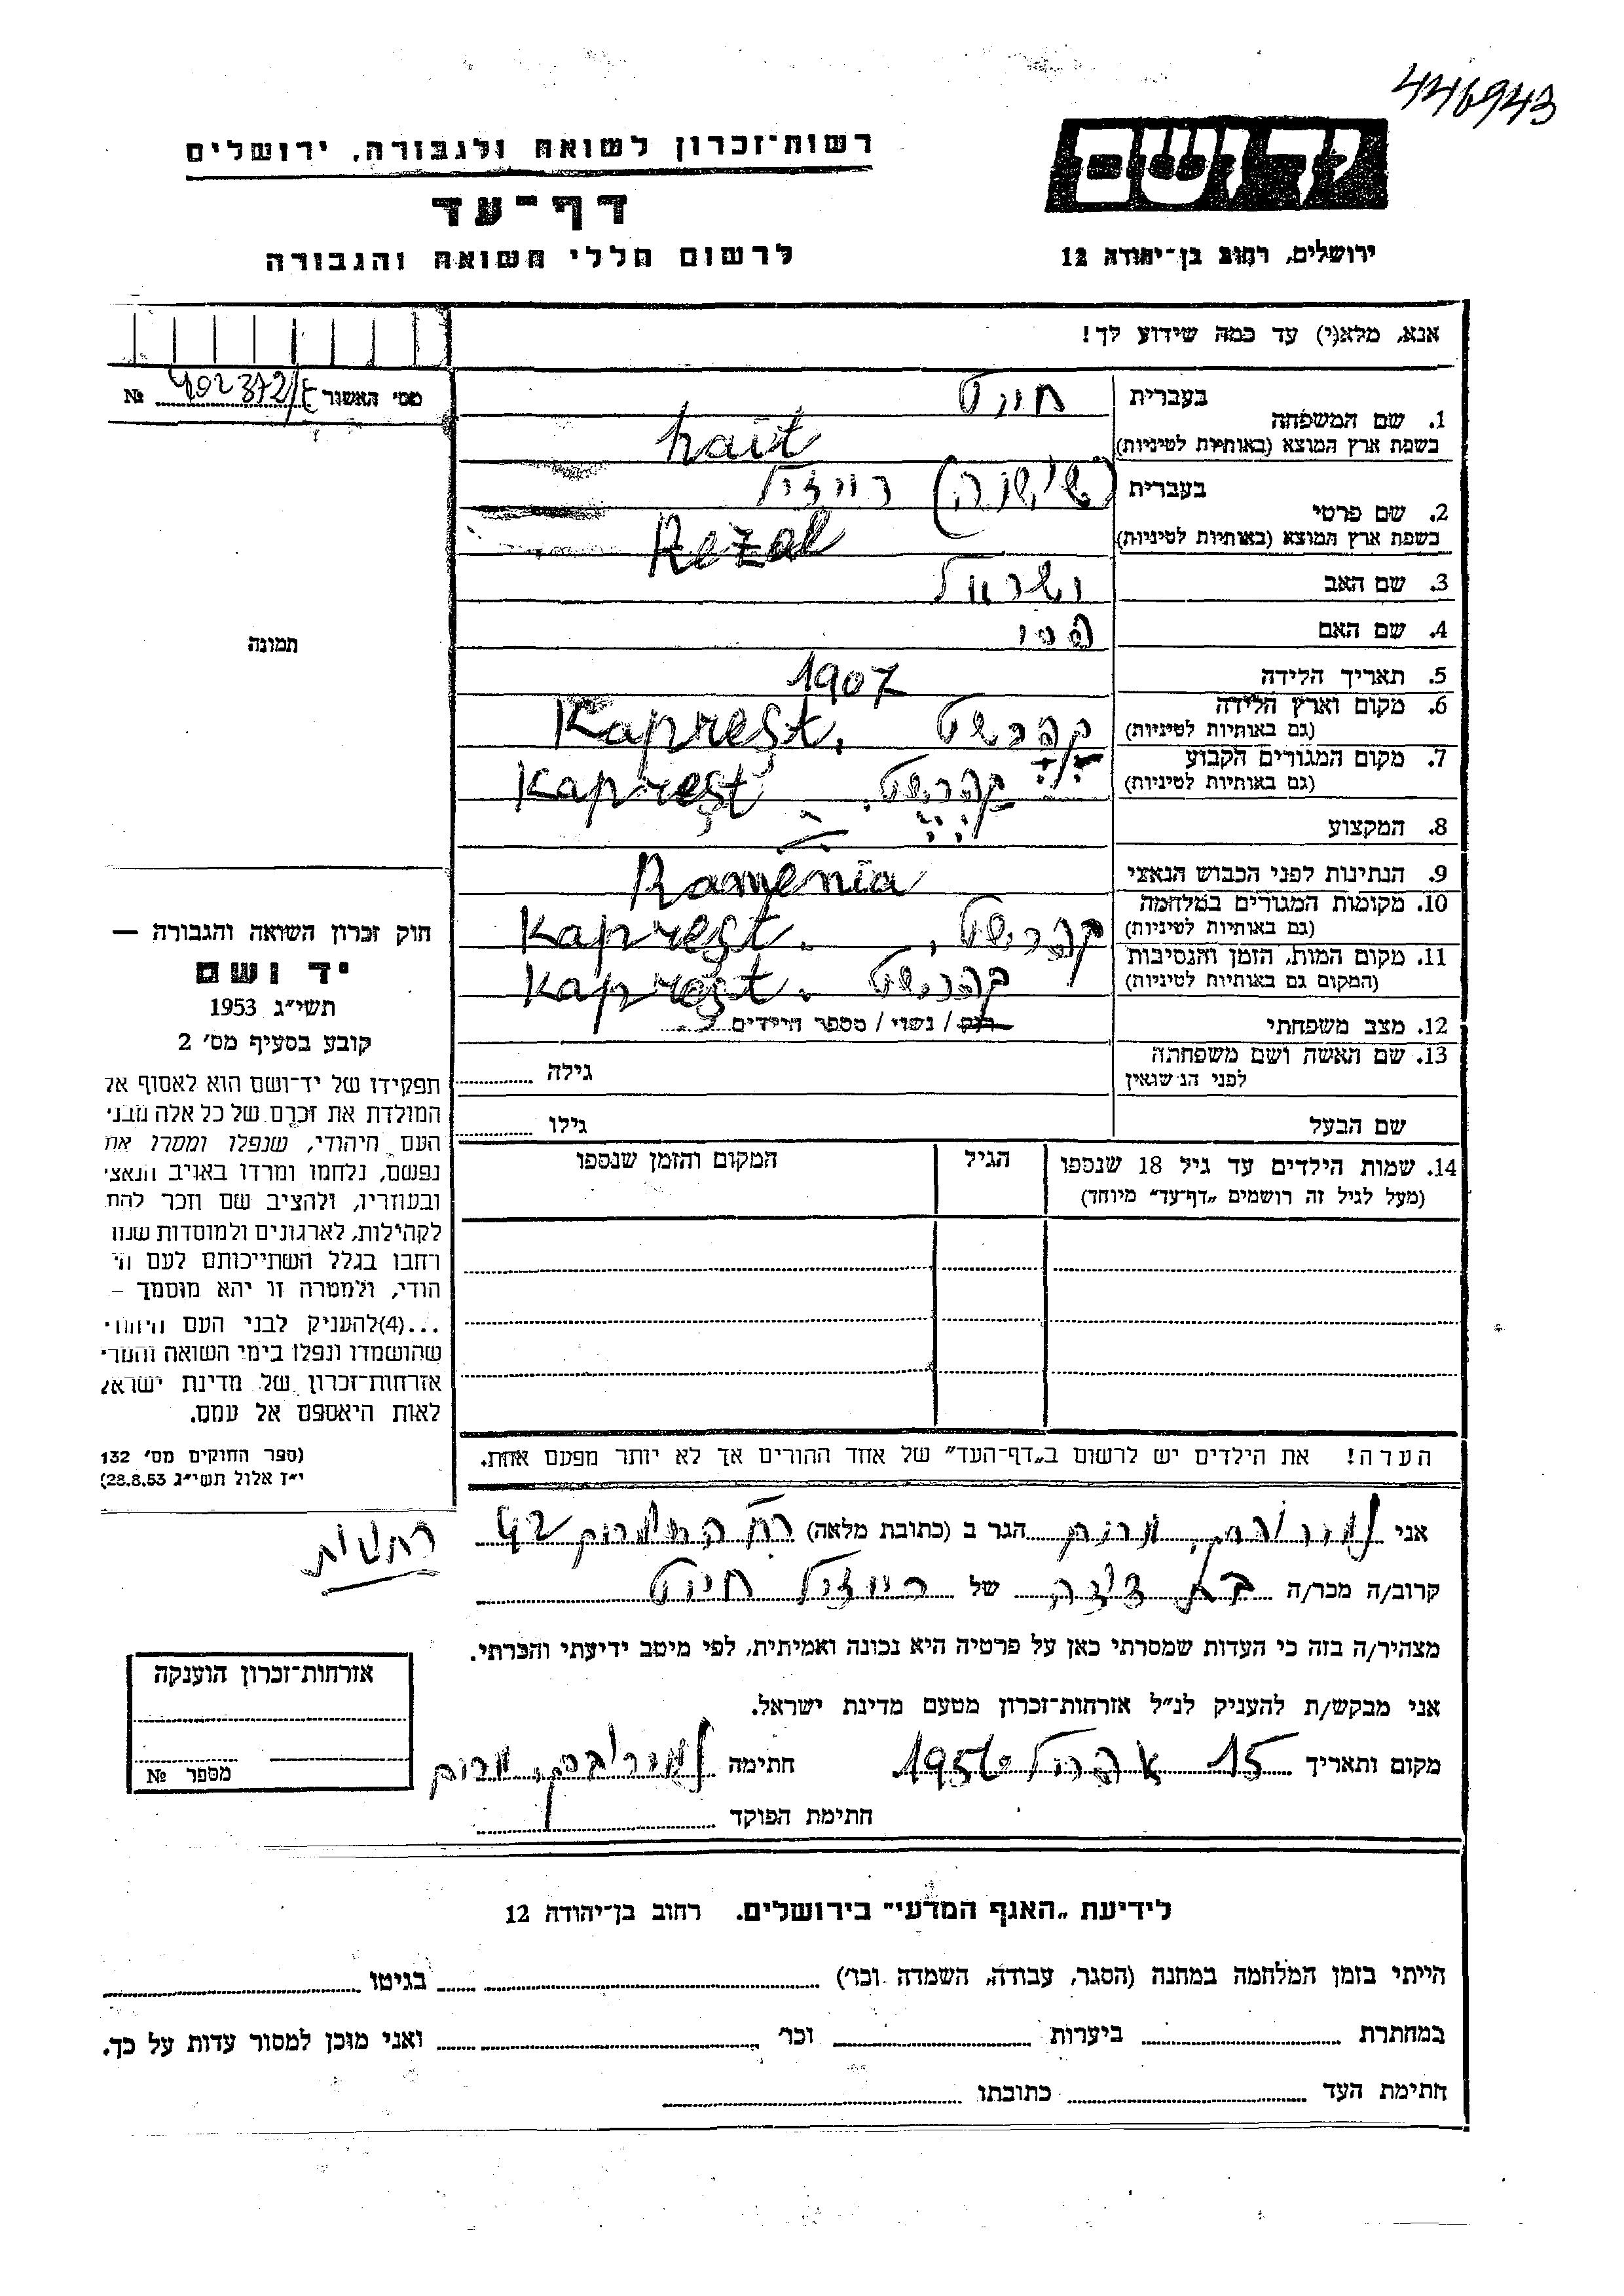 446943
יד ושם
רשות־זכרון לשואה ולגבורה, ירושלים
דף־עד
לרשום חללי השואה והגבורה
ירושלים, רחוב בן־יהודה 12
אנא, מלא(י) עד כמה שידוע לך!
מס׳ האשור № 402372/ع
1. שם המשפחה
בעברית
חויט
בשפת ארץ המוצא (באותיות לטיניות)
hait
2. שם פרטי
בעברית
(שושנה) רויזל
בשפת ארץ המוצא (באותיות לטיניות)
Rezal
3. שם האב
ישראל
4. שם האם
פסי
5. תאריך הלידה
1907
6. מקום וארץ הלידה
(גם באותיות לטיניות)
קפרשט Kapreşt.
7. מקום המגורים הקבוע
(גם באותיות לטיניות)
קפרשט. Kapreşt
8. המקצוע
9. הנתינות לפני הכבוש הנאצי
Ramênia
10. מקומות המגורים במלחמה
(גם באותיות לטיניות)
קפרשט, Kaprest.
11. מקום המות, הזמן והנסיבות
(המקום גם באותיות לטיניות)
קפרשט Kaprest.
12. מצב משפחתי
רוק / נשוי / מספר הילדים
13. שם האשה ושם משפחתה
לפני הנישואין
גילה
שם הבעל
גילו
14. שמות הילדים עד גיל 18 שנספו
(מעל לגיל זה רושמים „דף־עד״ מיוחד)
הגיל
המקום והזמן שנספו
הערה! את הילדים יש לרשום ב„דף־העד״ של אחד ההורים אך לא יותר מפעם אחת.
תמונה
חוק זכרון השואה והגבורה —
יד ושם
תשי״ג 1953
קובע בסעיף מס׳ 2
תפקידו של יד־ושם הוא לאסוף אל
המולדת את זכרם של כל אלה מבני
העם היהודי, שנפלו ומסרו את
נפשם, נלחמו ומרדו באויב הנאצי
ובעוזריו, ולהציב שם וזכר להם
לקהילות, לארגונים ולמוסדות שנח
רחבו בגלל השתייכותם לעם הי
הודי, ולמטרה זו יהא מוסמך –
...(4)להעניק לבני העם היהודי
שהושמדו ונפלו בימי השואה והמרי
אזרחות־זכרון של מדינת ישראל
לאות היאספם אל עמם.
(ספר החוקים מס׳ 132
י״ז אלול תשי״ג 28.8.53)
אני הגר ב (כתובת מלאה) 42
קרוב/ה מכר/ה בת דודה של רויזל חויט
מצהיר/ה בזה כי העדות שמסרתי כאן על פרטיה היא נכונה ואמיתית, לפי מיטב ידיעתי והכרתי.
אני מבקש/ת להעניק לנ״ל אזרחות־זכרון מטעם מדינת ישראל.
מקום ותאריך 15 אפריל 1956 חתימה
חתימת הפוקד
אזרחות־זכרון הוענקה
מספר №
לידיעת „האגף המדעי״ בירושלים. רחוב בן־יהודה 12
הייתי בזמן המלחמה במחנה (הסגר, עבודה, השמדה וכו׳) בגיטו
במחתרת ביערות וכו׳ ואני מוכן למסור עדות על כך.
חתימת העד כתובתו